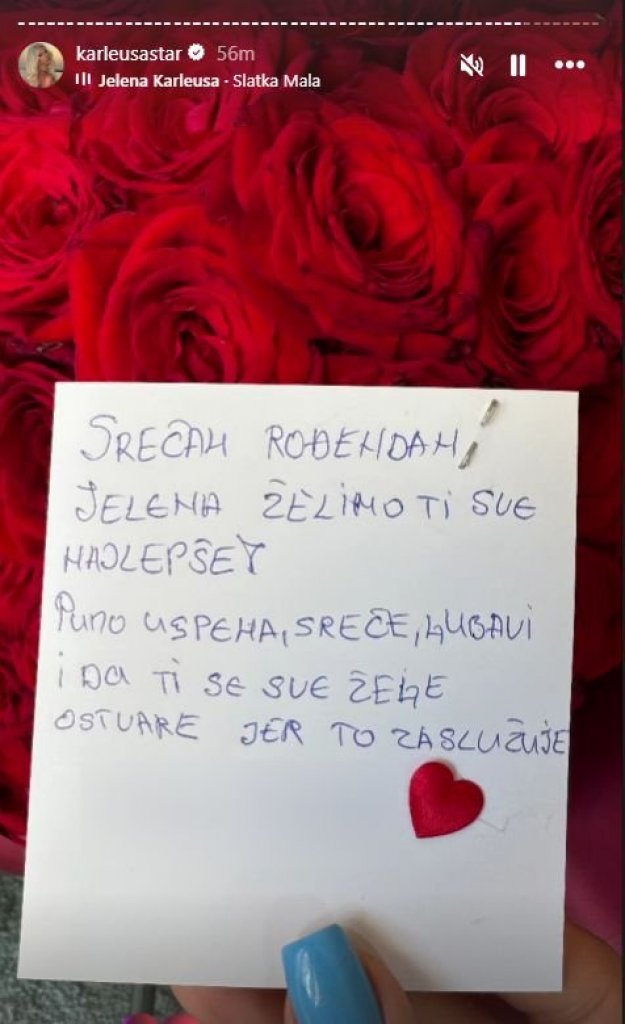 karleusastar 56m
Jelena Karleusa · Slatka Mala
SREČAN ROĐENDAN,
JELENA ŽELIMO TI SVE
NAJLEPŠE!
PUNO USPEHA, SREČE, LJUBAVI
I DA TI SE SVE ŽELJE
OSTVARE JER TO ZASLUŽUJE